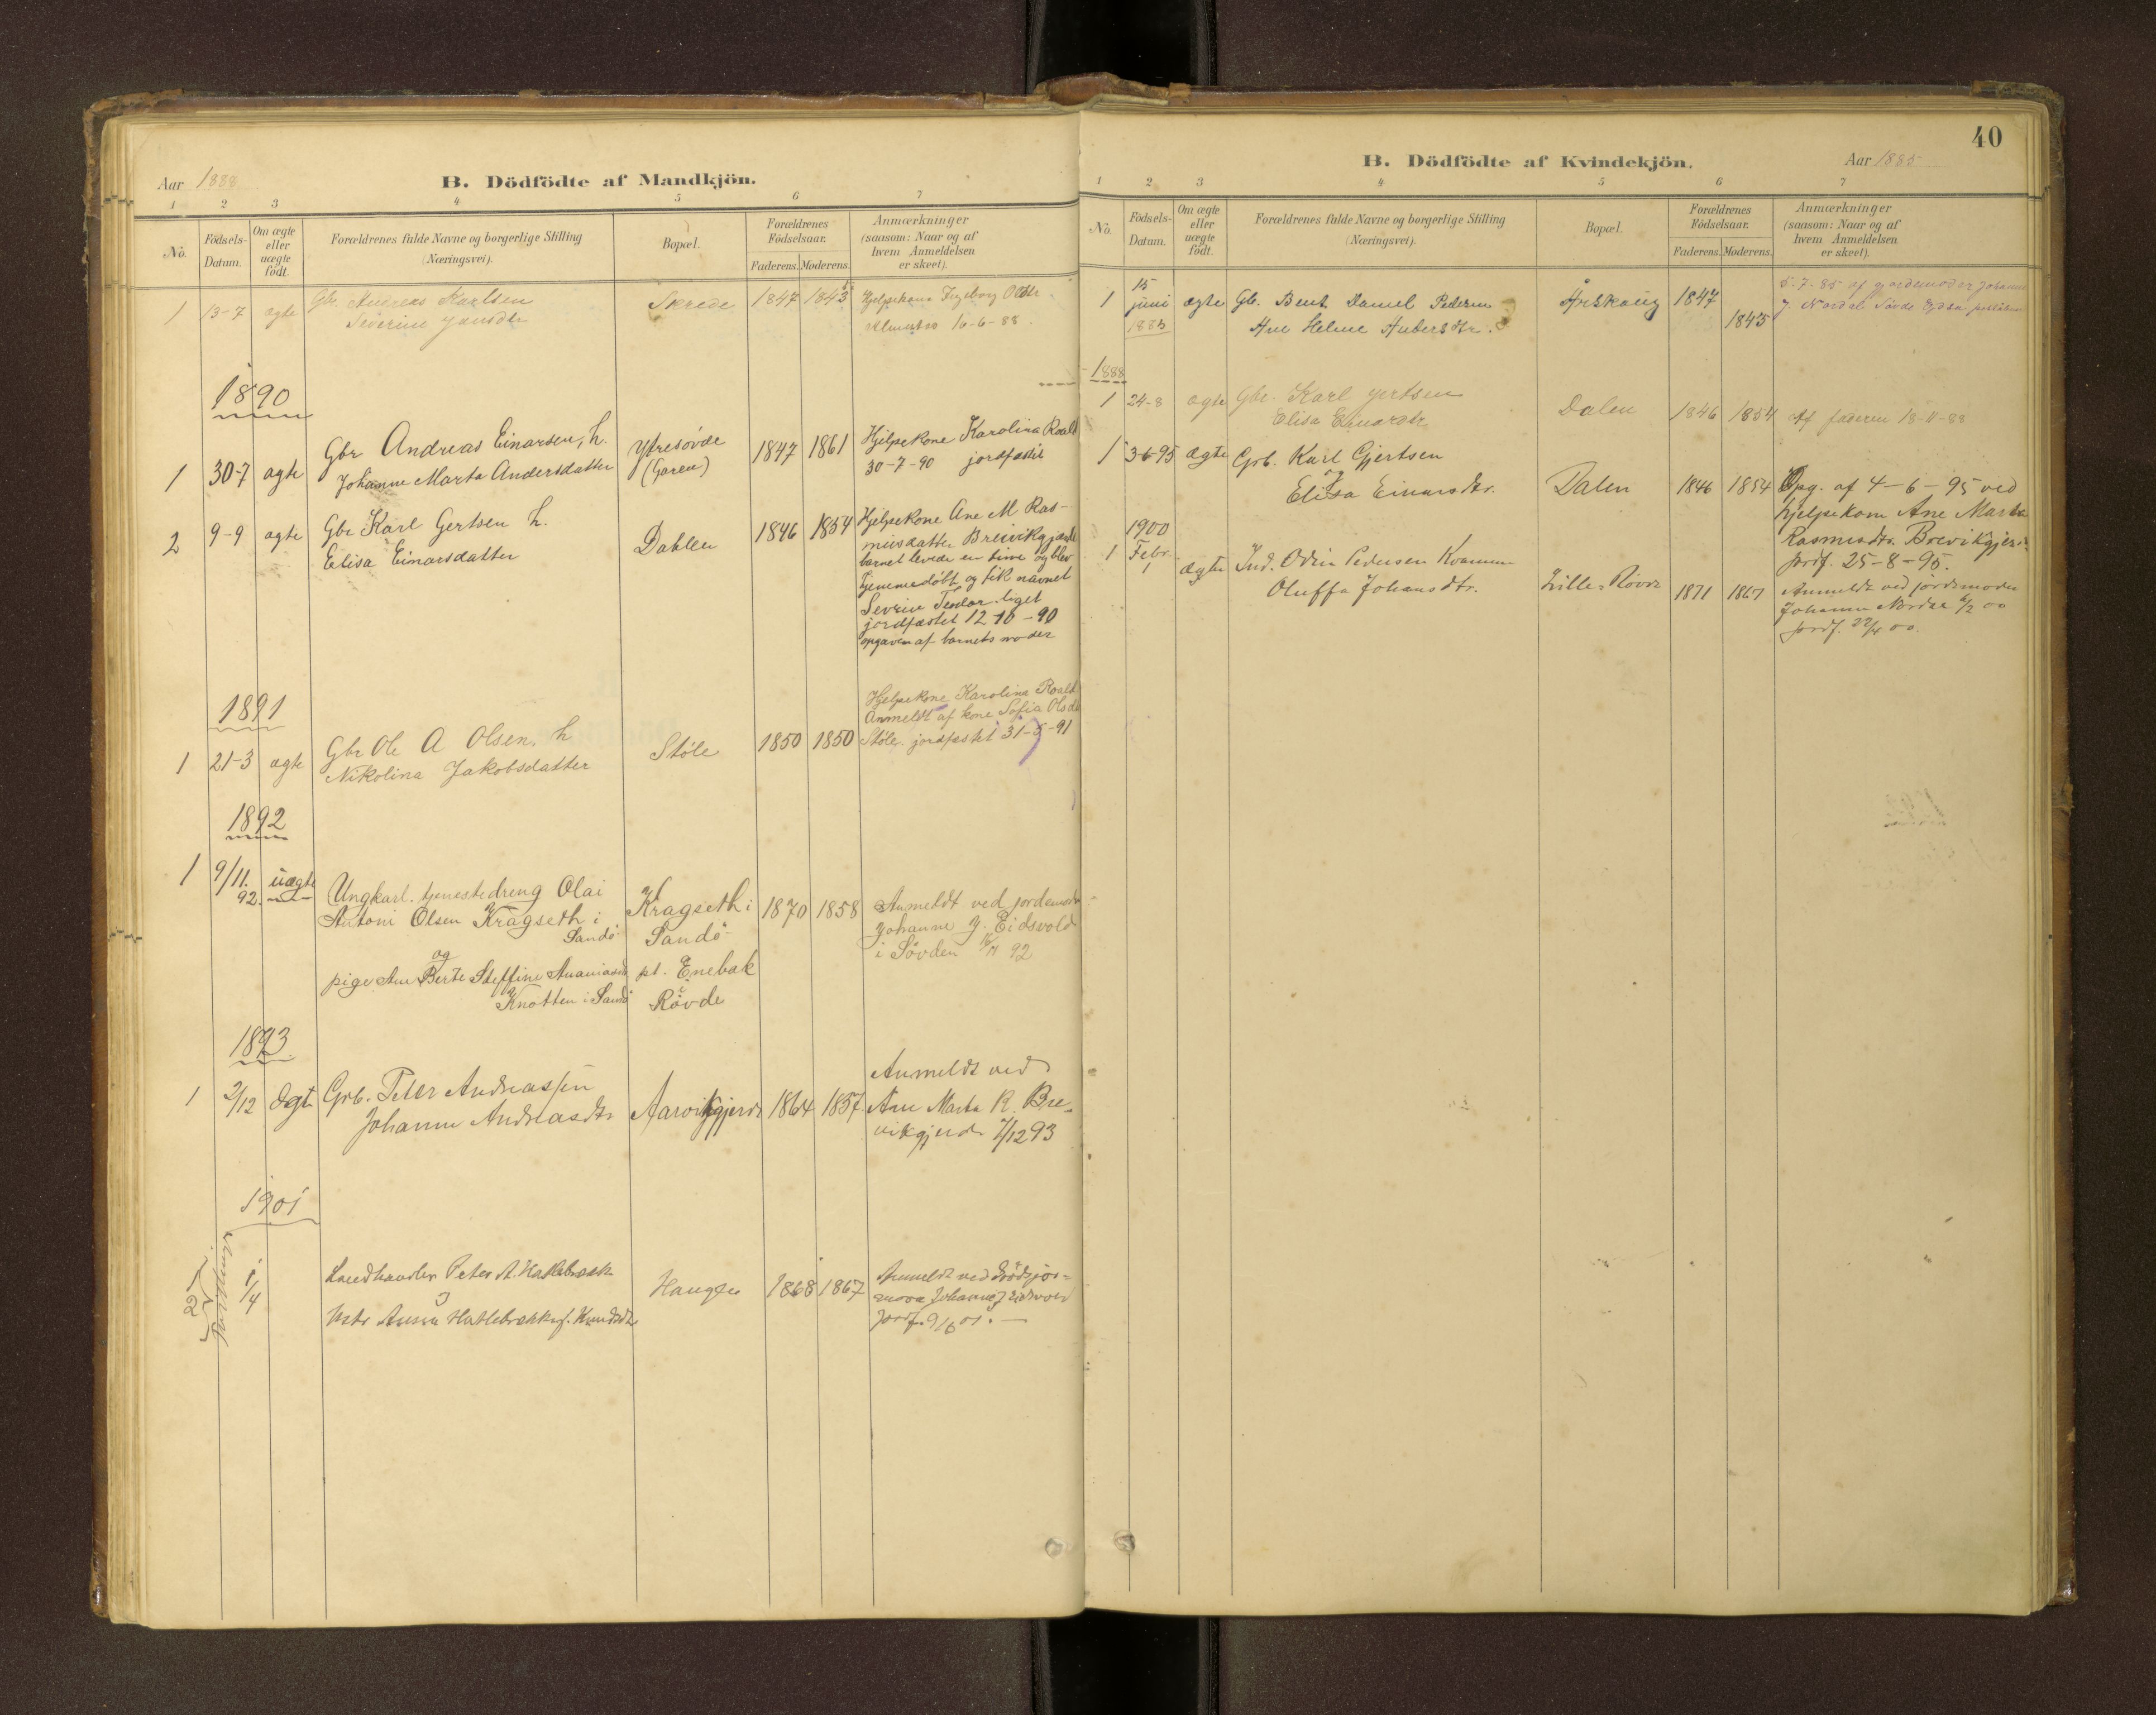 Aar 1888
B. Dödfödte af Mandkjön.
1 2 3 4 5 6 7
No.
Födsels-
Datum.
Om ægte
eller
uægte
födt.
Forældrenes fulde Navne og borgerlige Stilling
(Næringsvei).
Bopæl.
Forældrenes
Födselsaar.
Faderens. Moderens.
Anmærkninger
(saasom: Naar og af
hvem Anmeldelsen
er skeet).
1 13-7 ægte Gbr. Andreas Karlsen
Severine Jensdtr
Skrede 1847 1843
Hjelpekone Ingeborg
16-6-88.
1890
1 30-7 ægte Gbr Andreas Einarsen, h.
Johanne Marta Andersdatter
Ytresövde
(Garen)
1847 1861
Hjelpekone Karolina Roald
30-7-90 jordfæstet
2 9-9 ægte Gbr Karl Gertsen h.
Elisa Einarsdatter
Dahlen
1846 1854
Hjelpekone Ane M Ras-
musdatter Breivikgjærde
barnet levede en time og blev
hjemmedöbt og fik navnet
Severin Teodor. liget
jordfæstet 12-10-90
opgaven af barnets moder
1891
1 21-3 ægte Gbr Ole A Olsen, h
Nikolina Jakobsdatter
Støle
1850 1850
Hjelpekone Karolina Roald
Anmeldt af kone Sofia Olsdt
Støle. jordfæstet 31-5-91
1892
1 9/11. 92. uægte
Ungkarl. tjenestedreng Olai
Antoni Olsen Kragseth i
Sandö
og
pige Ane Berte Steffine Ananiasd
Knotten i Sandö
Kragseth i
Sandö
pt. Enebak
i
Rövde
1870 1858
Anmeldt ved jordemoder
Johanne J. Eidsvold
i Sövden 92
1893
1 2/12 Ægte Grb. Peter Andreassen
Johanne Andreasdtr
Aarvikgjerde
1864 1857.
Anmeldt ved
Ane Marta R. Bre-
vikgjerde 7/12 93
1901
2
1/4
Landhandler Peter A. Hatlebrekk
og
Anna Hatlebrekk f. Knudsdtr
Haugen
1868 1867
Anmeldt ved
Johanne J Eidsvold
Jordf. 9/6 01. —
40
B. Dödfödte af Kvindekjön.
Aar 1885
1 2 3 4 5 6 7
No.
Födsels-
Datum.
Om ægte
eller
uægte
födt.
Forældrenes fulde Navne og borgerlige Stilling
(Næringsvei).
Bopæl.
Forældrenes
Födselsaar.
Faderens. Moderens.
Anmærkninger
(saasom: Naar og af
hvem Anmeldelsen
er skeet).
1 15
juni
1885
ægte Gb. Bent Daniel Pedersen
Ane Heline Andersdtr.
Årskaug
1847
1845
5-7-85 af gjordemoder Johanne
J Nordal Sövde
1888
1 24-8 ægte Gbr. Karl Gertsen
Elisa Einardtr
Dalen 1846 1854 Af faderen 18-11-88
1 3-6-95 ægte Grb. Karl Gjertsen
og
Elisa Einarsdtr.
Dalen 1846 1854
Opg. af 4-6-95 ved
hjelpekone Ane Marta
Rasmusdtr. Brevikgjer-
jordf. 25-8-95.
1900
1 Febr.
1
ægte Ind. Odin Pedersen Kvamme
Oluffa Johansdtr.
Lille-Rövde 1871 1867
Anmeldt ved jordemoder
Johanne Nordal 6/2 00
jordf. 22/4 00.